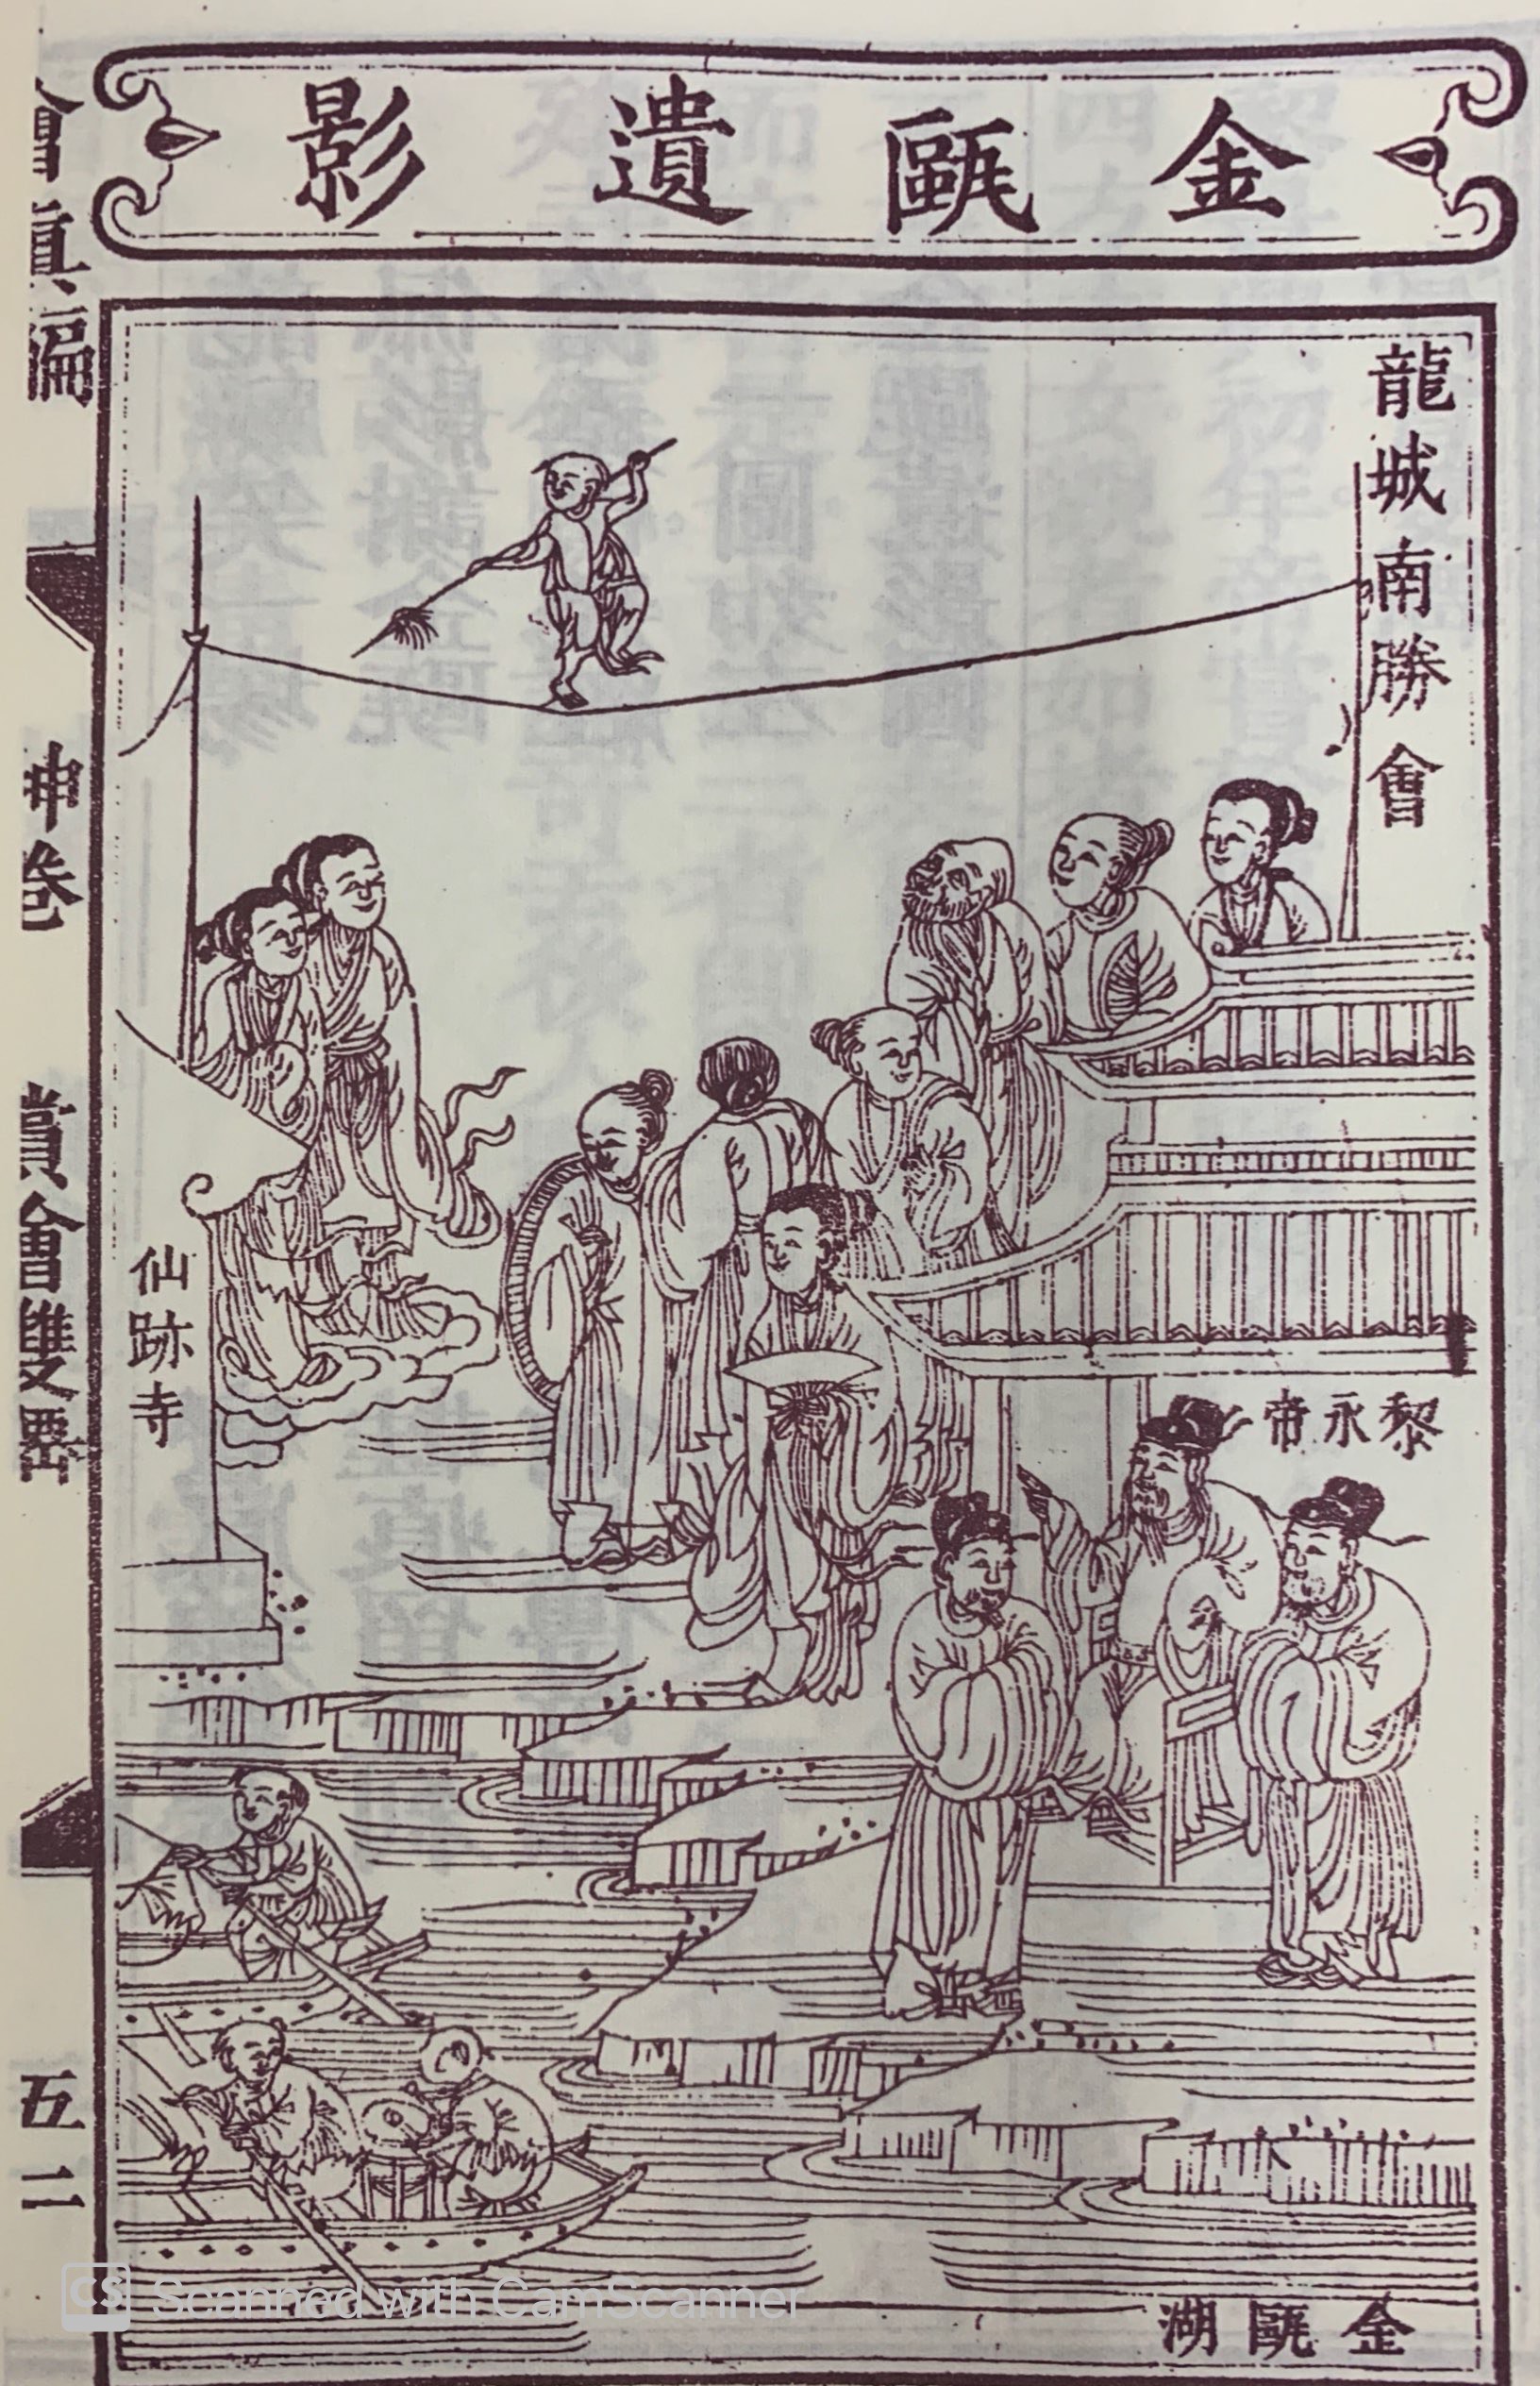 金甌遺影
龍城南勝會
黎永帝
仙跡寺
金甌湖
會真編
坤卷
賞會雙
五二
CS Scanned with CamScanner